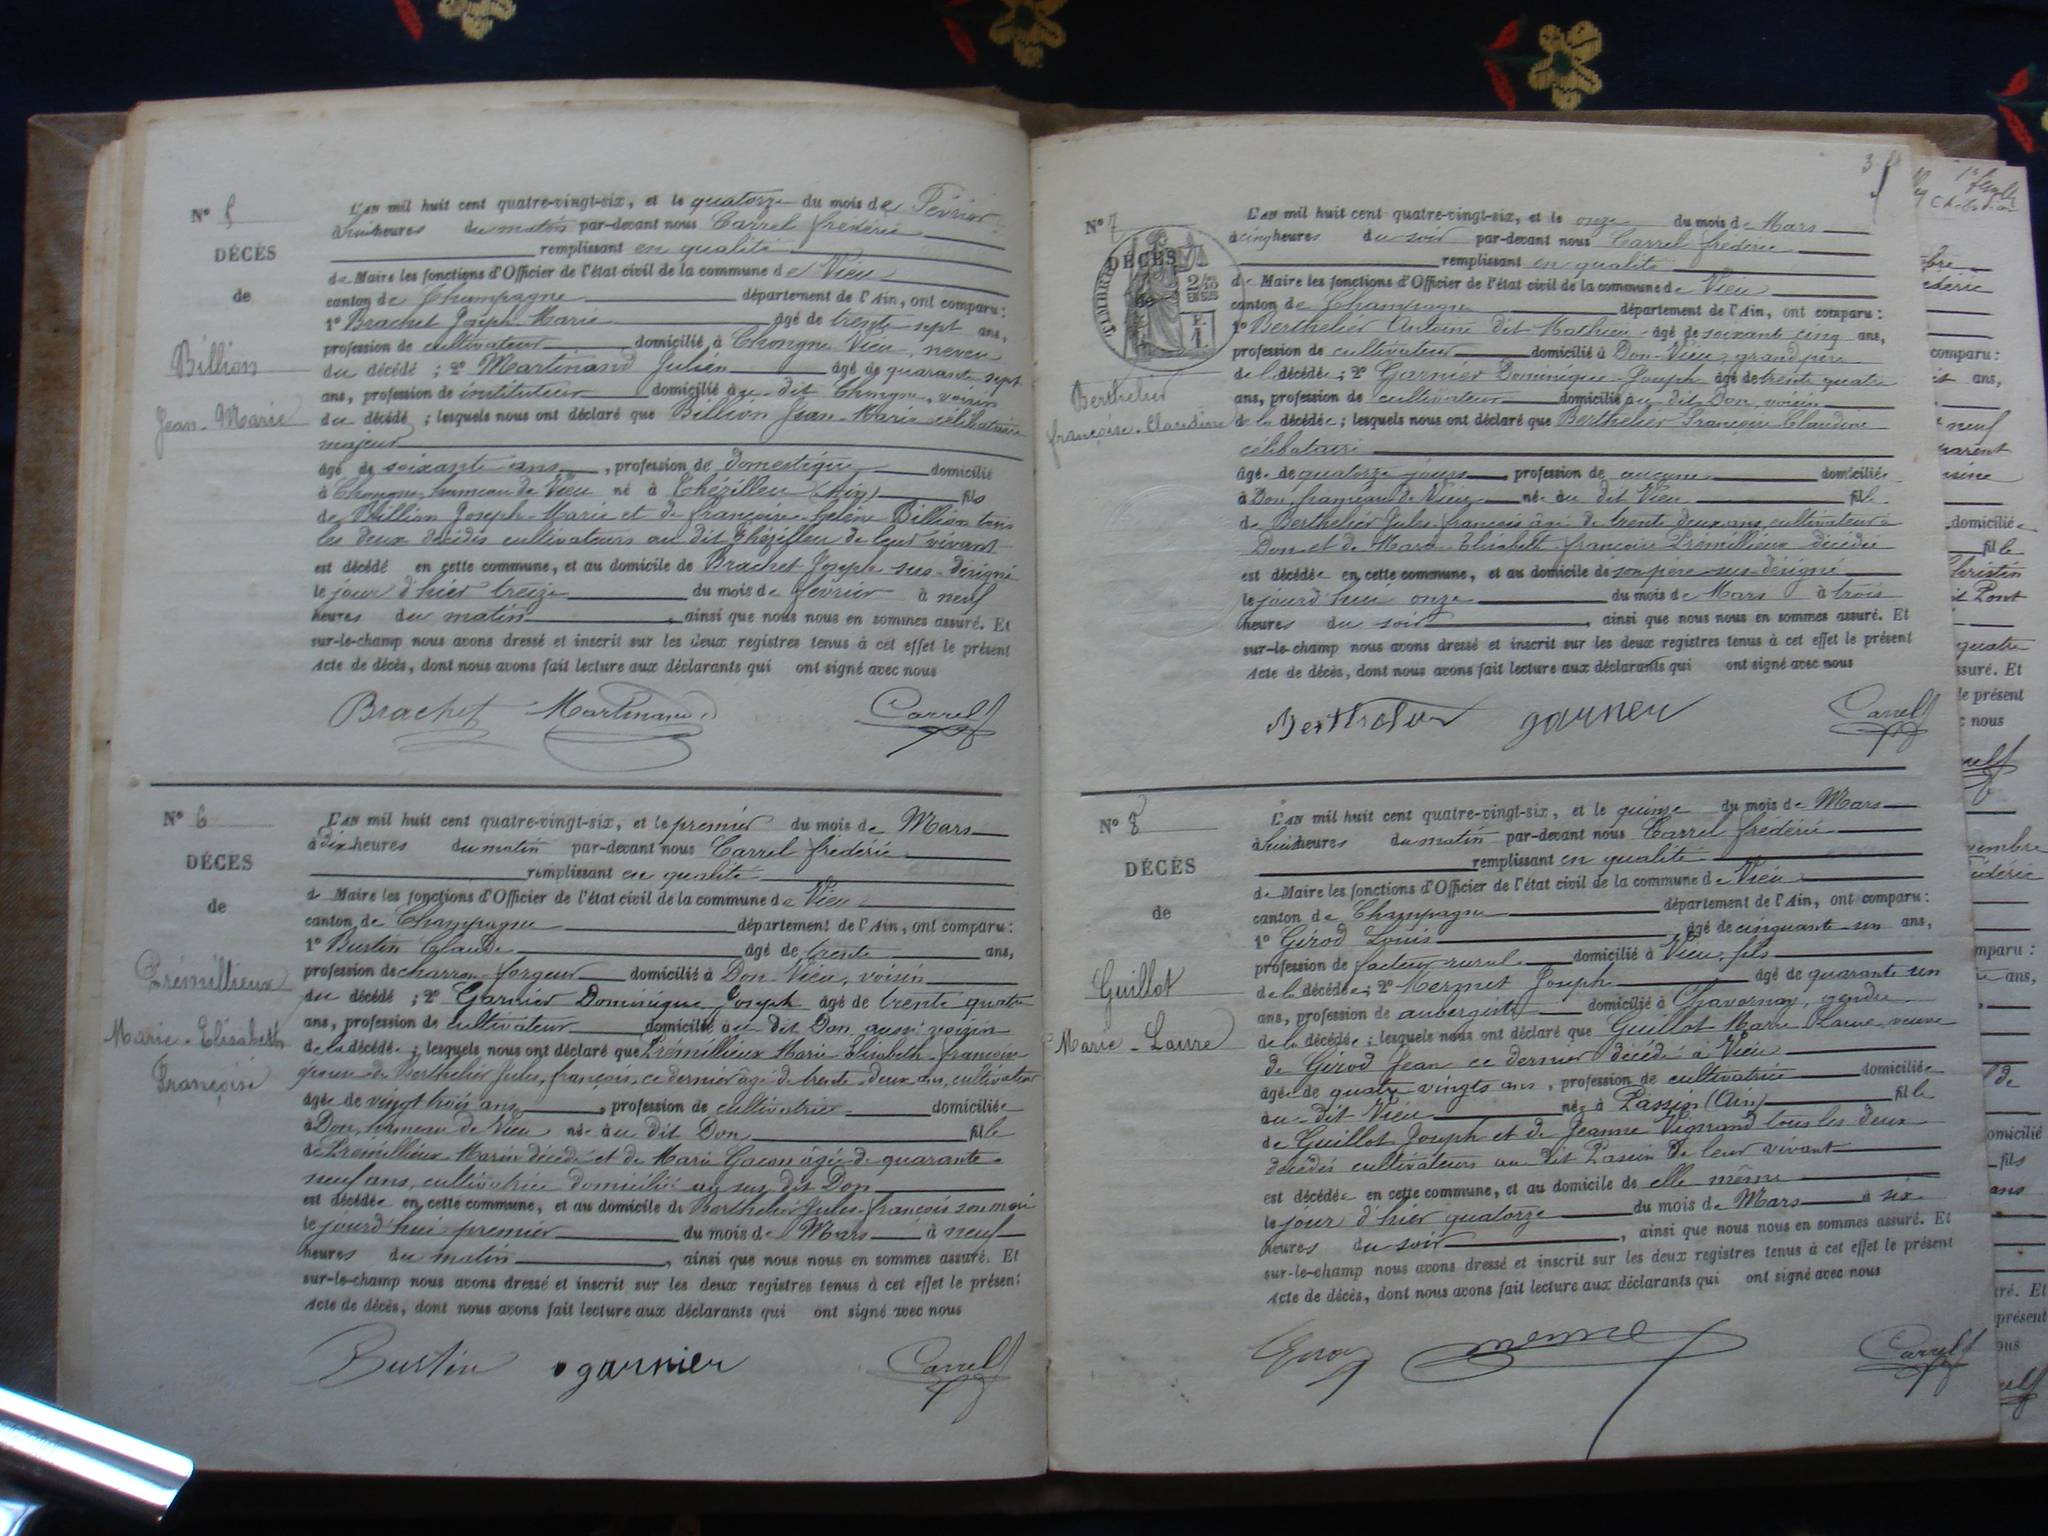 N° 5
DÉCÈS
de
Billion
Jean-Marie
L'AN mil huit cent quatre-vingt-six, et le quatorze du mois de Février
à huit heures du matin par-devant nous Carrel frédéric
remplissant en qualité
de Maire les fonctions d'Officier de l'état civil de la commune de Vieu
canton de Champagne département de l'Ain, ont comparu :
1° Brachet Joseph-Marie âgé de trente-sept ans,
profession de cultivateur domicilié à Chongne Vieu, neveu
du décédé ; 2° Martinand Julien âgé de quarante sept
ans, profession de instituteur domicilié au dit Chongne, voisin
du décédé ; lesquels nous ont déclaré que Billion Jean-Marie célibataire
majeur
âgé de soixante ans, profession de domestique domicilié
à Chongne, hameau de Vieu né à Thézillieu (Ain) fils
de Billion Joseph-Marie et de françoise-helène Billion tous
les deux décédés cultivateurs au dit Thézillieu de leur vivant
est décédé en cette commune, et au domicile de Brachet Joseph sus-désigné
le jour d'hier treize du mois de février à neuf
heures du matin, ainsi que nous nous en sommes assuré. Et
sur-le-champ nous avons dressé et inscrit sur les deux registres tenus à cet effet le présent
Acte de décès, dont nous avons fait lecture aux déclarants qui ont signé avec nous
Brachet Martinand Carrel
N° 6
DÉCÈS
de
Prémillieux
Marie-Elisabeth
Françoise
L'AN mil huit cent quatre-vingt-six, et le premier du mois de Mars
à dix heures du matin par-devant nous Carrel frédéric
remplissant en qualité
de Maire les fonctions d'Officier de l'état civil de la commune de Vieu
canton de Champagne département de l'Ain, ont comparu :
1° Bustin Claude âgé de trente ans,
profession de charron-forgeur domicilié à Don-Vieu, voisin
du décédé ; 2° Garnier Dominique Joseph âgé de trente quatre
ans, profession de cultivateur domicilié au dit Don, aussi voisin
de la décédée ; lesquels nous ont déclaré que Prémillieux Marie-Elisabeth-françoise
épouse de Berthelier Jules, françois, ce dernier âgé de trente-deux ans, cultivateur
âgée de vingt trois ans, profession de cultivatrice domiciliée
à Don, hameau de Vieu née au dit Don fille
de Prémillieux Marin décédé et de Marie Gacon âgée de quarante-
neuf ans, cultivatrice domiciliée au sus dit Don
est décédée en cette commune, et au domicile de Berthelier Jules-françois son mari
le jourd'hui premier du mois de Mars à neuf
heures du matin, ainsi que nous nous en sommes assuré. Et
sur-le-champ nous avons dressé et inscrit sur les deux registres tenus à cet effet le présent
Acte de décès, dont nous avons fait lecture aux déclarants qui ont signé avec nous
Bustin garnier Carrel
3
N° 7
DÉCÈS
Berthelier
françoise-Claudine
L'AN mil huit cent quatre-vingt-six, et le onze du mois de Mars
à cinq heures du soir par-devant nous Carrel frédéric
remplissant en qualité
de Maire les fonctions d'Officier de l'état civil de la commune de Vieu
canton de Champagne département de l'Ain, ont comparu :
1° Berthelier Antoine dit Mathieu âgé de soixante cinq ans,
profession de cultivateur domicilié à Don-Vieu, grand père
de la décédée ; 2° Garnier Dominique-Joseph âgé de trente quatre
ans, profession de cultivateur domicilié au dit Don, voisin
de la décédée ; lesquels nous ont déclaré que Berthelier Françoise Claudine
célibataire
âgée de quatorze jours, profession de aucune domiciliée
à Don, hameau de Vieu née au dit Vieu fille
de Berthelier Jules-françois âgé de trente deux ans, cultivateur à
Don et de Marie-Elisabeth-françoise Prémillieux décédée
est décédée en cette commune, et au domicile de son père sus-désigné
le jourd'hui onze du mois de Mars à trois
heures du soir, ainsi que nous nous en sommes assuré. Et
sur-le-champ nous avons dressé et inscrit sur les deux registres tenus à cet effet le présent
Acte de décès, dont nous avons fait lecture aux déclarants qui ont signé avec nous
Berthelier garnier Carrel
N° 8
DÉCÈS
de
Guillot
Marie-Laure
L'AN mil huit cent quatre-vingt-six, et le quinze du mois de Mars
à huit heures du matin par-devant nous Carrel frédéric
remplissant en qualité
de Maire les fonctions d'Officier de l'état civil de la commune de Vieu
canton de Champagne département de l'Ain, ont comparu :
1° Girod Louis âgé de cinquante-un ans,
profession de facteur rural domicilié à Vieu, fils
de la décédée ; 2° Joseph âgé de quarante un
ans, profession de aubergiste domicilié à Chavornay, gendre
de la décédée ; lesquels nous ont déclaré que Guillot Marie Laure, veuve
de Girod Jean ce dernier décédé à Vieu
âgée de quatre vingts ans, profession de cultivatrice domiciliée
au dit Vieu née à Passin (Ain) fille
de Guillot Joseph et de Jeanne Vignand tous les deux
décédés cultivateurs au dit Passin de leur vivant
est décédée en cette commune, et au domicile de elle même
le jour d'hier quatorze du mois de Mars à six
heures du soir, ainsi que nous nous en sommes assuré. Et
sur-le-champ nous avons dressé et inscrit sur les deux registres tenus à cet effet le présent
Acte de décès, dont nous avons fait lecture aux déclarants qui ont signé avec nous
Girod Carrel